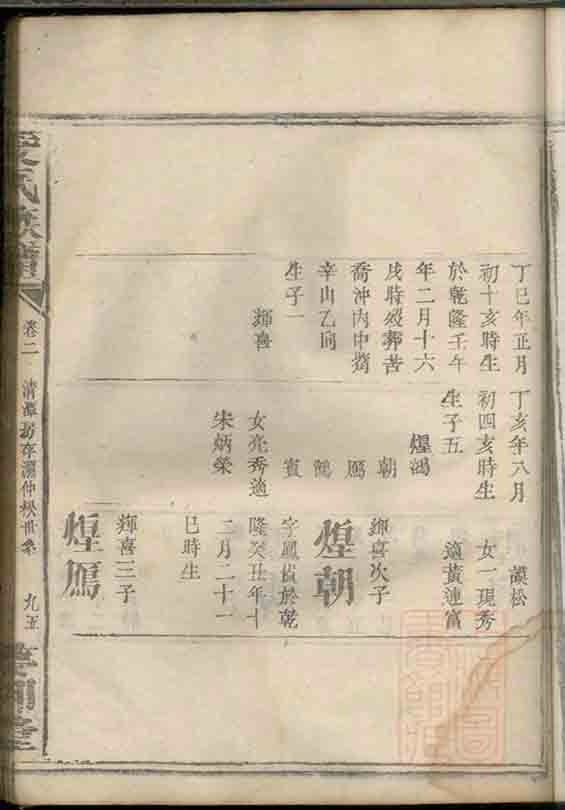 丁巳年正月
初十亥時生
於乾隆壬午
年二月十六
戌時歿葬苦
喬沖內中嶺
辛山乙向
生子一
輝喜
丁亥年八月
初四亥時生
生子五
煌鴻
朝
鴈
鶴
賓
女亮秀適
朱炳榮
謨松
女一現秀
適黃連富
輝喜次子
煌朝
字鳳儀於乾
隆癸丑年十
二月二十一
巳時生
輝喜三子
煌鴈
氏族譜
卷二
清潭房存
仲
世系
九五
堂